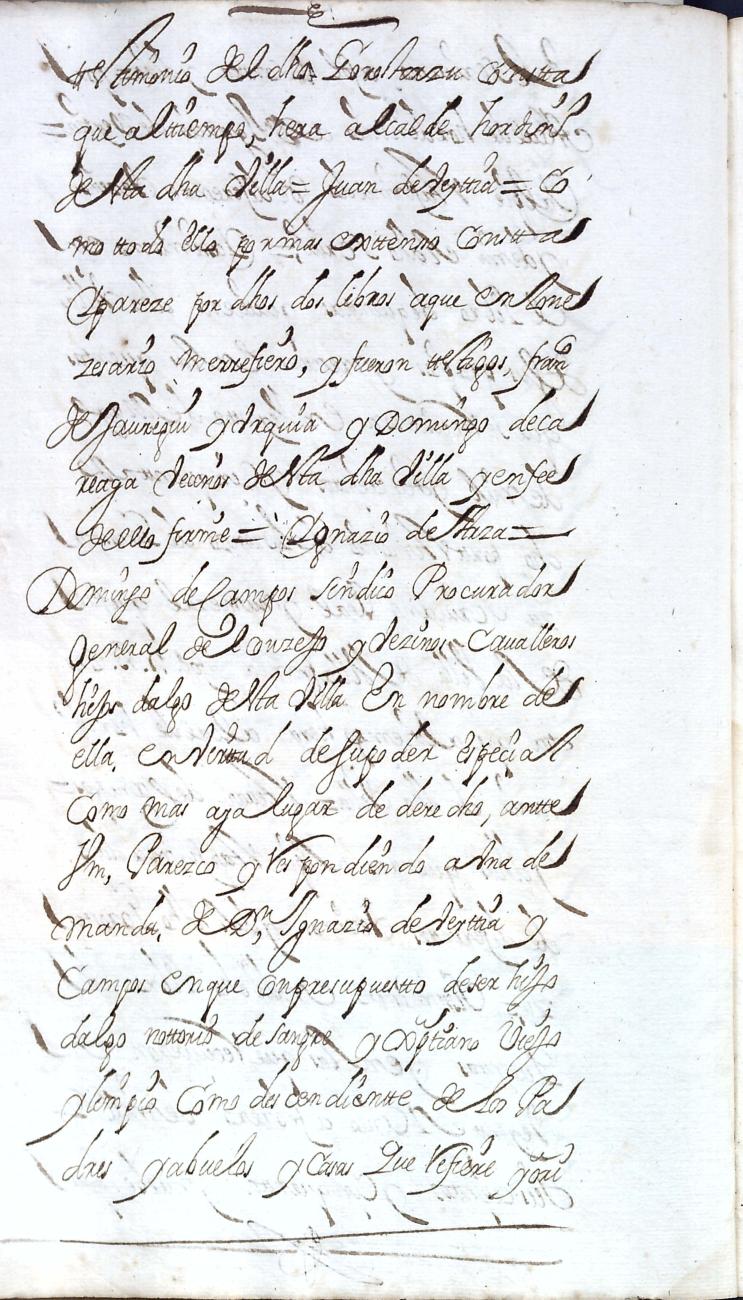 ttestimonio del dho Gorostarzu Constta
que al ttiempo, hera alcalde hordinº
destta dha Villa = Juan de Veyttia = Co
mo ttodo ello por mas exttenso Constta
Y pareze por dhos dos libros aque en lo ne
zesario me rrefiero, y fueron ttestigos, franco
de Jauregui y Vrquia y Domingo de ca
reaga Vecinos destta dha Villa y en fee
de ello firme = Ygnazio de
Domingo de Campos sindico Procurador
general del Conzejo y Vezinos Cavalleros
hijos dalgo destta Villa En nombre de
ella, en Virttud de su poder espeçial
Como mas aya lugar de derecho, antte
Vm, Parezco y Respondiendo a Vna de
manda, de Dn, Ygnazio de Veyttia y
Campos en que Conpresupuestto de ser hijo
dalgo nottorio de sangre y Xpttiano Viejo
y limpio Como descendientte de los Pa
dres y abuelos y Casas Que Refiere y ori